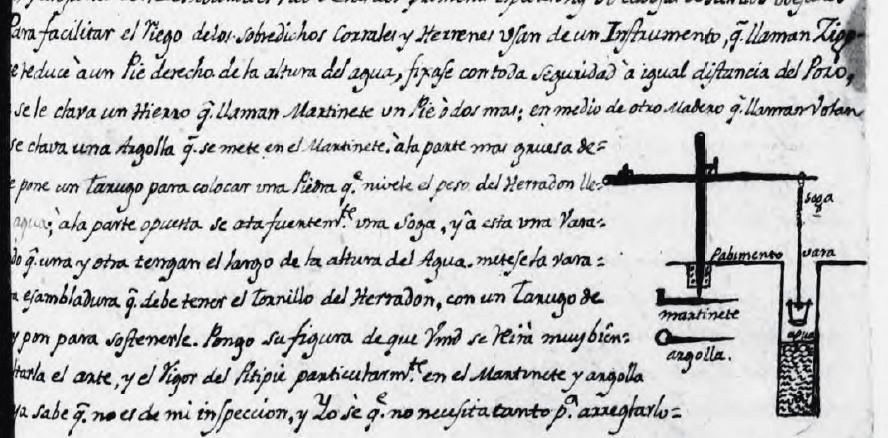 Para facilitar el Riego delos sobredichos Corrales y Herrenes Vsan de un Instrumento, q̃. llaman Zigo-
se reduce à un Pie derecho de la altura del agua, fixase con toda seguridad à igual distancia del Pozo,
se le clava un Hierro q̃. llaman Martinete un Pie ò dos mas; en medio de otro Madero q̃. llaman Volan
se clava una Argolla q̃. se mete en el Martinete. àla parte mas gruesa de=
e pone un Tarugo para colocar una Piedra q.ᵉ nivele el peso del Herradon lle=
agua; àla parte opuesta se ata fuertem.ᵗᵉ vna Soga, y à esta vna Vara=
do q̃. una y otra tengan el largo de la altura del Agua. metese la vara=
a esambladura q̃. debe tener el Tornillo del Herradon, con un Tarugo de
y pon para sostenerle. Pongo su figura de que Vmd se Reirà muy bièn=
tarla el arte, y el Vigor del Pitipiè particularm.ᵗᵉ en el Martinete y argolla
ya sabe q̃. no es de mi inspeccion, y Yo sè q.ᵉ no necesita tanto p.ᵃ arreglarlo=
soga
Pabimento
vara
martinete
agua
argolla.